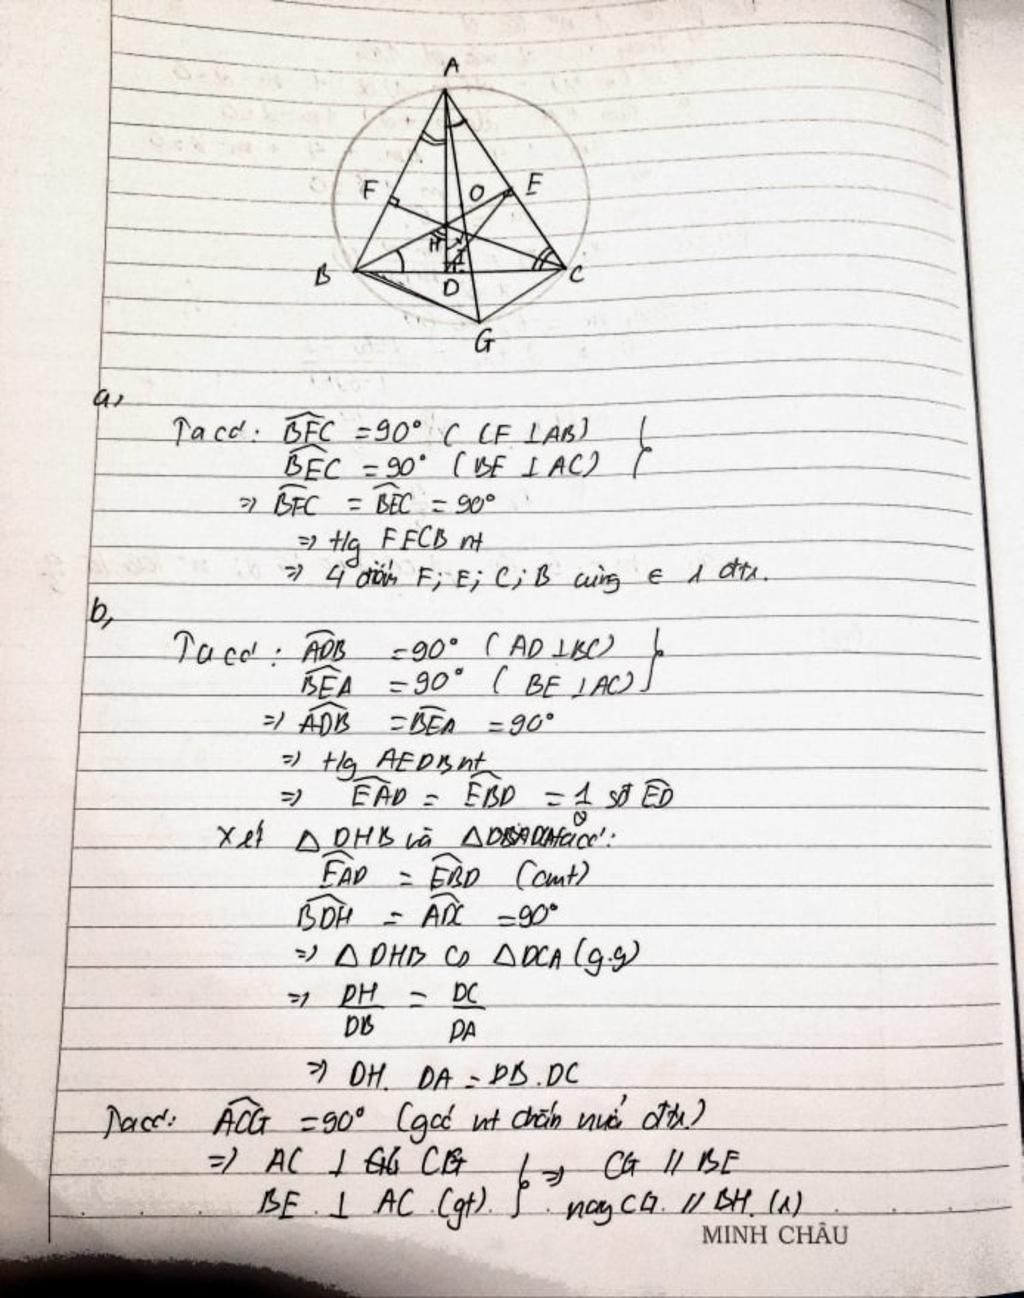 A
F
O
E
H
I
B
D
C
G
a,
Ta có: BFC = 90° ( CF ⊥ AB)
BEC = 90° ( BE ⊥ AC)
=> BFC = BEC = 90°
=> t/g FECB nt
=> 4 điểm F; E; C; B cùng ∈ 1 đtr.
b,
Ta có: ADB = 90° ( AD ⊥ BC)
BEA = 90° ( BE ⊥ AC)
=> ADB = BEA = 90°
=> t/g AEDB nt
=> EAD = EBD = 1/2 sđ ED
Xét △ DHB và △ DCA có:
EAD = EBD (cmt)
BDH = ADC = 90°
=> △ DHB ∽ △ DCA (g.g)
=> DH/DB = DC/DA
=> DH. DA = DB. DC
Ta có: ACG = 90° (góc nt chắn nửa đtr)
=> AC ⊥ CG => CG // BE
BE ⊥ AC (gt) hay CG // BH (1)
MINH CHÂU